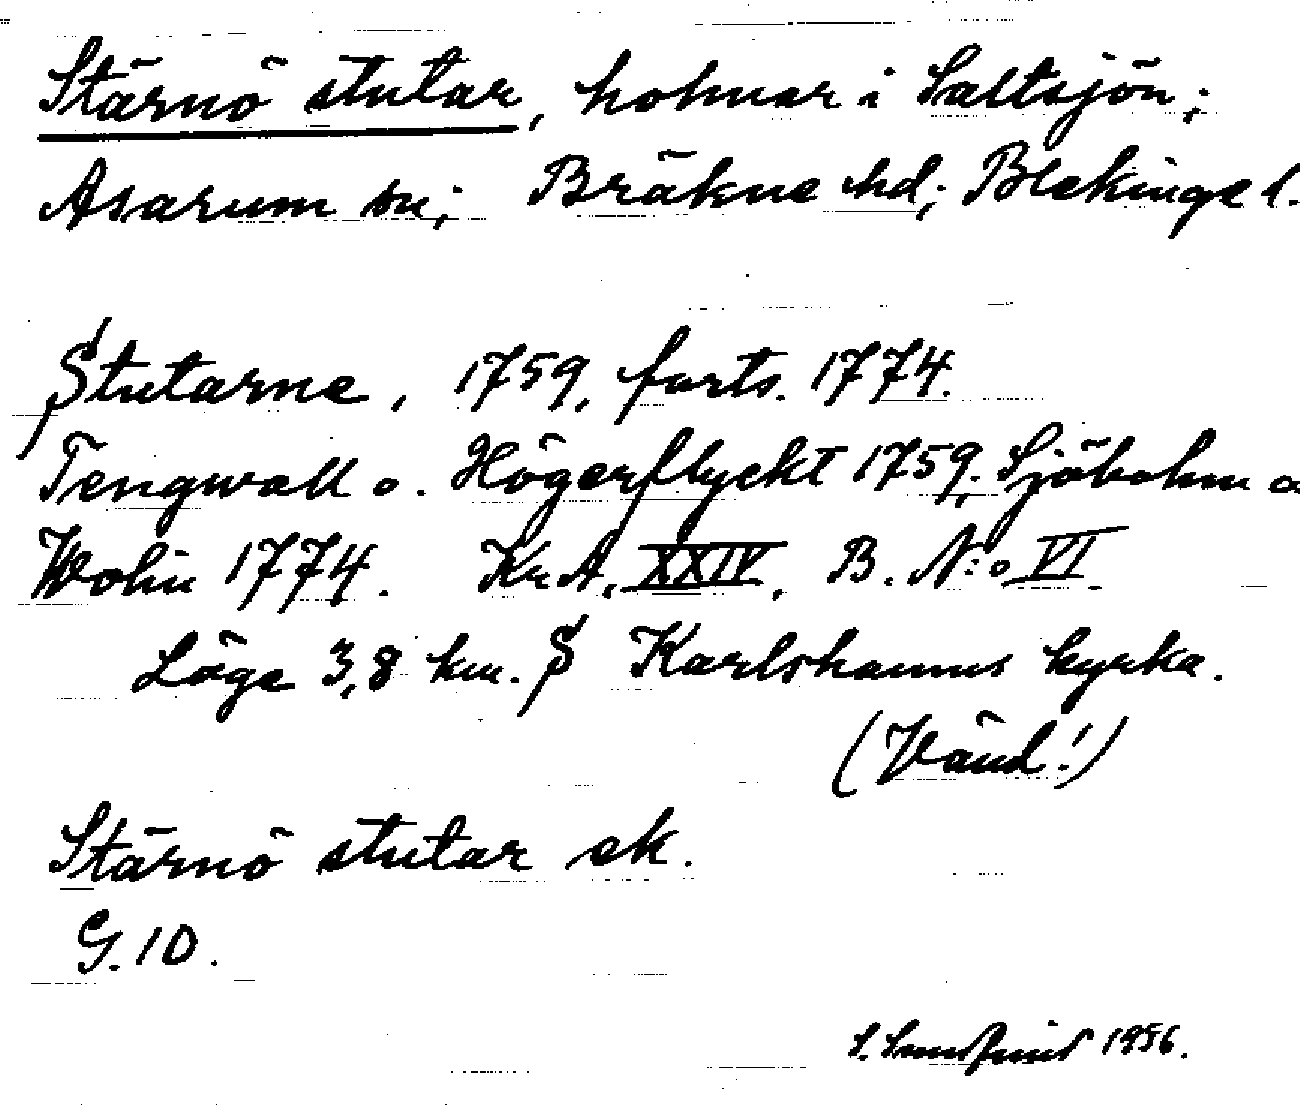 Stärnö stutar, holmar i Saltsjön;
Asarum sn; Bräkne hd; Blekinge l.
Stutarne, 1759, forts. 1774.
Tengwall o. Högerflyckt 1759; Sjöbohm o
Wohn 1774. Kr A, XXIV, B. N:o VI
Läge 3,8 km. S Karlshamns kyrka.
(Vänd!)
Stärnö stutar ek.
G. 10.
S. 1956.